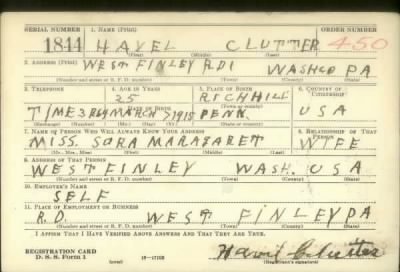 SERIAL NUMBER 1. NAME (Print) ORDER NUMBER
1844 HAVEL CLUTTER 450
(First) (Middle) (Last)
2. ADDRESS (Print)
WEST FINLEY RD1 WASHCO PA
(Number and street or R. F. D. number) (Town) (County) (State)
3. TELEPHONE 4. AGE IN YEARS 5. PLACE OF BIRTH 6. COUNTRY OF CITIZENSHIP
25 RICHHILL
DATE OF BIRTH (Town or county)
MARCH 7 1915 PENN. USA
(Exchange) (Number) (Mo.) (Day) (Yr.) (State or country)
7. NAME OF PERSON WHO WILL ALWAYS KNOW YOUR ADDRESS 8. RELATIONSHIP OF THAT PERSON
MISS. SARA MARAGARET WIFE
(Mr., Mrs., Miss) (First) (Middle) (Last)
9. ADDRESS OF THAT PERSON
WEST FINLEY WASH. USA
(Number and street or R. F. D. number) (Town) (County) (State)
10. EMPLOYER'S NAME
SELF
11. PLACE OF EMPLOYMENT OR BUSINESS
R.D. WEST FINLEY PA
(Number and street or R. F. D. number) (Town) (County) (State)
I AFFIRM THAT I HAVE VERIFIED ABOVE ANSWERS AND THAT THEY ARE TRUE.
REGISTRATION CARD
D. S. S. Form 1 (over) 16—17105 (Registrant's signature)